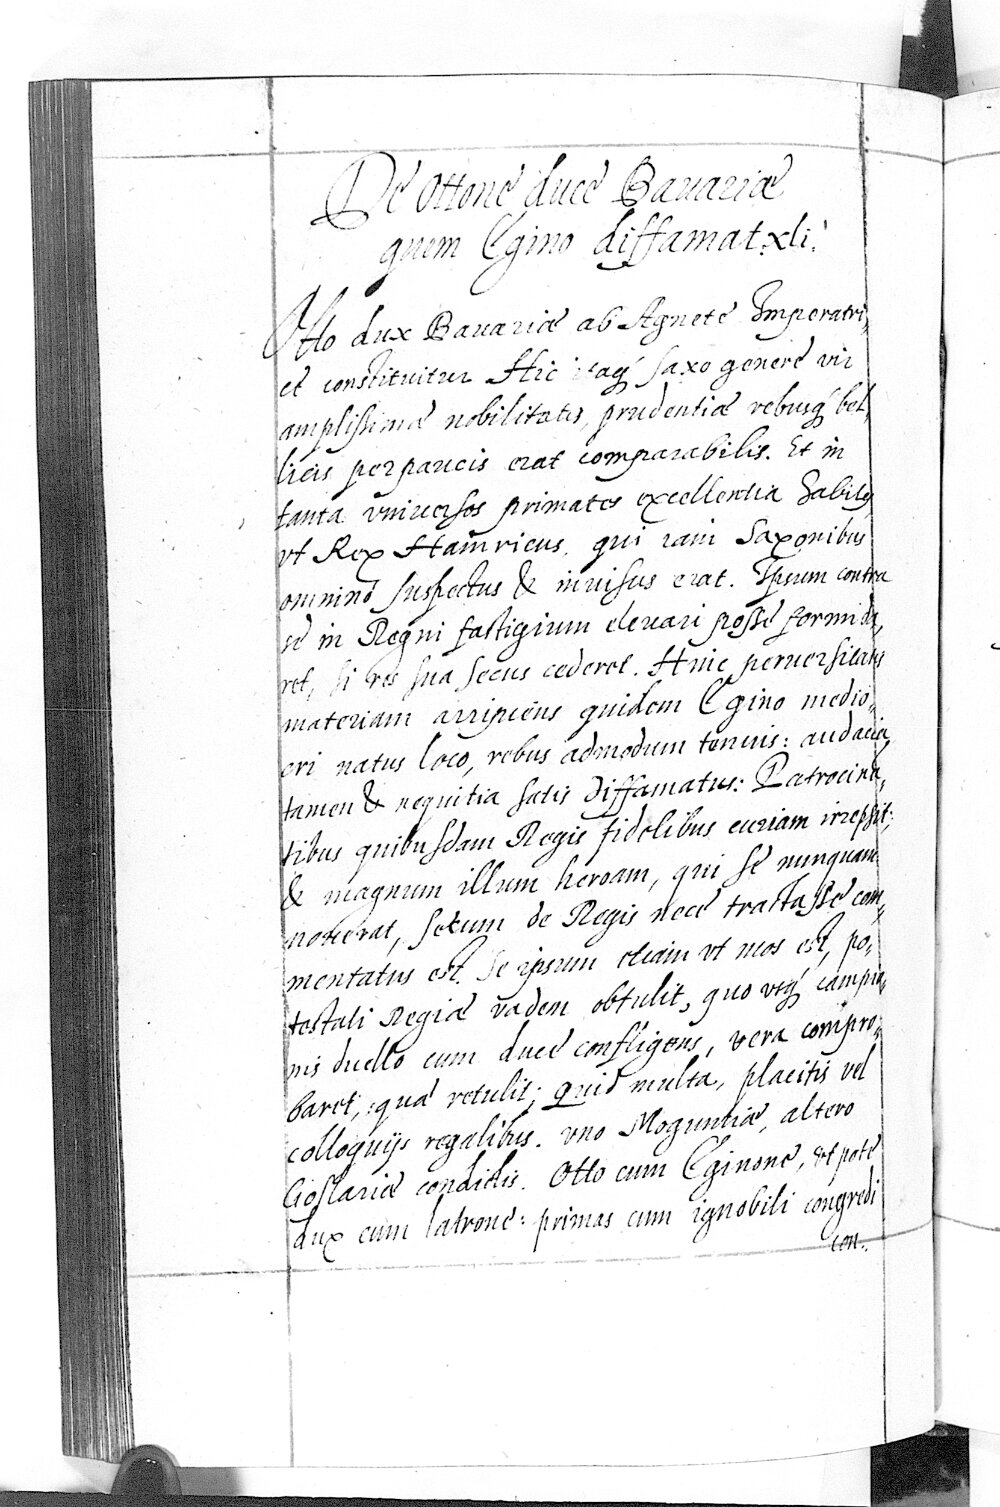 De Ottone duce Bauariæ
quem Egino diffamat. xli.
Otto dux Bauariæ ab Agnete Imperatri,
ce constituitur Hic itaq; saxo genere vir
amplissimæ nobilitatis, prudentiæ rebusq; bel,
licis perpaucis erat comparabilis. Et in
tanta vniuersos primates excellentia habilis,
vt Rex Hainricus, qui iam Saxonibus
omnino suspectus & inuisus erat. Ipsum contra
se in Regni fastigium eleuari posse formida,
ret, si res sua secus cederet. Huic peruersitatis
materiam arripiens quidem Egino medio,
cri natus loco, rebus admodum tenuis: audacia,
tamen & nequitia satis diffamatus: Patrocinā,
tibus quibusdam Regis fidelibus curiam irrepsit;
& magnum illum heroam, qui se nunquam
nouerat, secum de Regis nece tractasse com,
mentatus est. Se ipsum etiam vt mos est, po,
testati Regiæ vadem obtulit, quo vtq; campio,
nis duello cum duce confligens, vera compro,
baret, quæ retulit; quid multa, placitis vel
colloquijs regalibus. vno Moguntiæ, altero
Goslariæ condictis. Otto cum Eginone, vt pote
dux cum latrone: primas cum ignobili congredi
con..